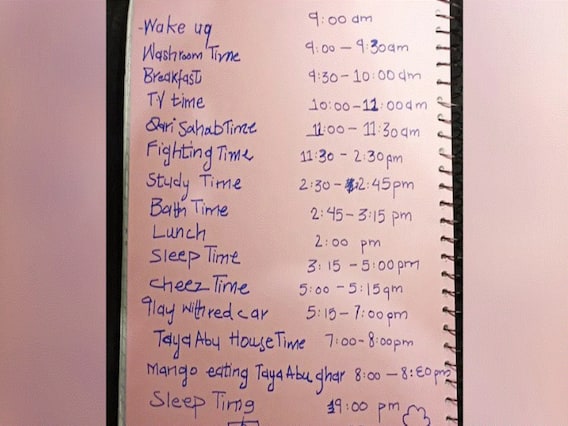 Wake up 9:00 am
Washroom Time 9:00 - 9:30am
Breakfast 9:30-10:00am
TV time 10:00-11:00am
Qari Sahab Time 11:00 - 11:30am
Fighting Time 11:30 - 2:30pm
Study Time 2:30 - 2:45pm
Bath Time 2:45-3:15 pm
Lunch 2:00 pm
Sleep Time 3:15 - 5:00pm
cheez Time 5:00 - 5:15am
Play with red car 5:15-7:00pm
Taya Abu House Time 7:00-8:00pm
Mango eating Taya Abu ghar 8:00 - 8:30pm
Sleep Timg 9:00 pm